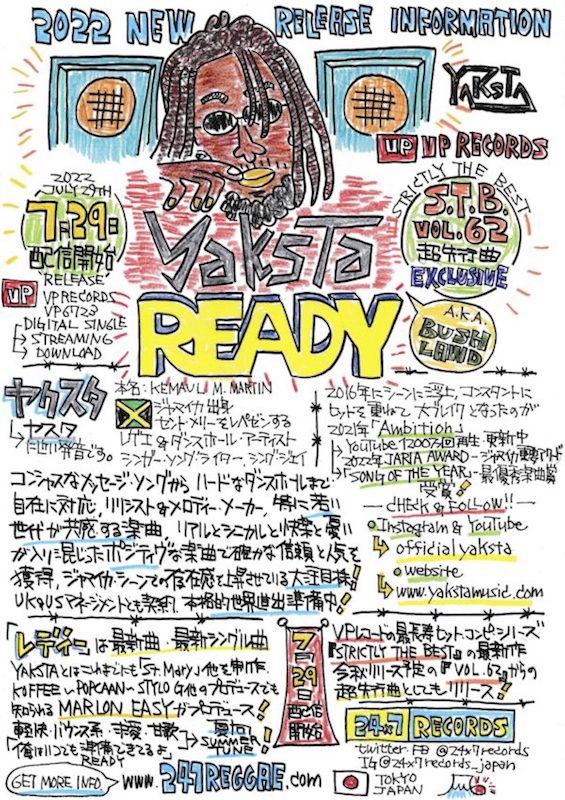 2022 NEW RELEASE INFORMATION
YAKSTA
VP VP RECORDS
2022
JULY 29TH
7月29日
配信開始
RELEASE
VP RECORDS
VP6723
DIGITAL SINGLE
→ STREAMING
→ DOWNLOAD
VP
STRICTLY THE BEST
S.T.B.
VOL.62
超先行曲
EXCLUSIVE
YAKSTA
READY
A.K.A.
BUSH
LAWD
ヤクスタ
→ ヤスタ
発音です。
本名:KEMAUL M. MARTIN
ジャマイカ出身
セント・メリーをレペゼンする
レゲエ&ダンスホール・アーティスト
シンガー・ソングライター、シングジェイ
2016年にシーンに浮上、コンスタントに
ヒットを重ねて大ブレイクとなったのが
2021年「Ambition」
→ YouTube 1200万回再生・更新中
→ 2022年 JARIA AWARD -
「SONG OF THE YEAR」- 最優秀楽曲賞
受賞!
コンシャスなメッセージ・ソングからハードなダンスホールまで
自在に対応、リリシスト&メロディ・メーカー。特に若い
世代が共感する楽曲、リアルとシニカルと快楽と憂い
が入り混じったポジティヴな楽曲で確かな信頼と人気を
獲得、ジャマイカ・シーンでの存在感を上昇させている大注目株!
UK&USマネージメントとも契約、本格的世界進出準備中!
- CHECK & FOLLOW!! -
Instagram & YouTube
→ officialyaksta
website
→ www.yakstamusic.com
「レディー」は最新曲・最新シングル曲
YAKSTAとはこれまでにも「St. Mary」他を制作
KOFFEE〜POPCAAN〜STYLO G他のプロデュースでも
知られるMARLON EASYがプロデュース!
軽快・ハウス系・求愛・甘歌
「俺はいつも準備できてるよ」
READY
→ 夏向
SUMMER
TUNE!
7月29日配信開始
VPレコードの最長寿ヒット・コンピ・シリーズ
『STRICTLY THE BEST』の最新作
今秋リリース予定の『VOL.62』からの
超先行曲としてリリース!
24x7 RECORDS
twitter FB @24x7records
IG@24x7records_japan
GET MORE INFO
www.247REGGAE.com
TOKYO
JAPAN